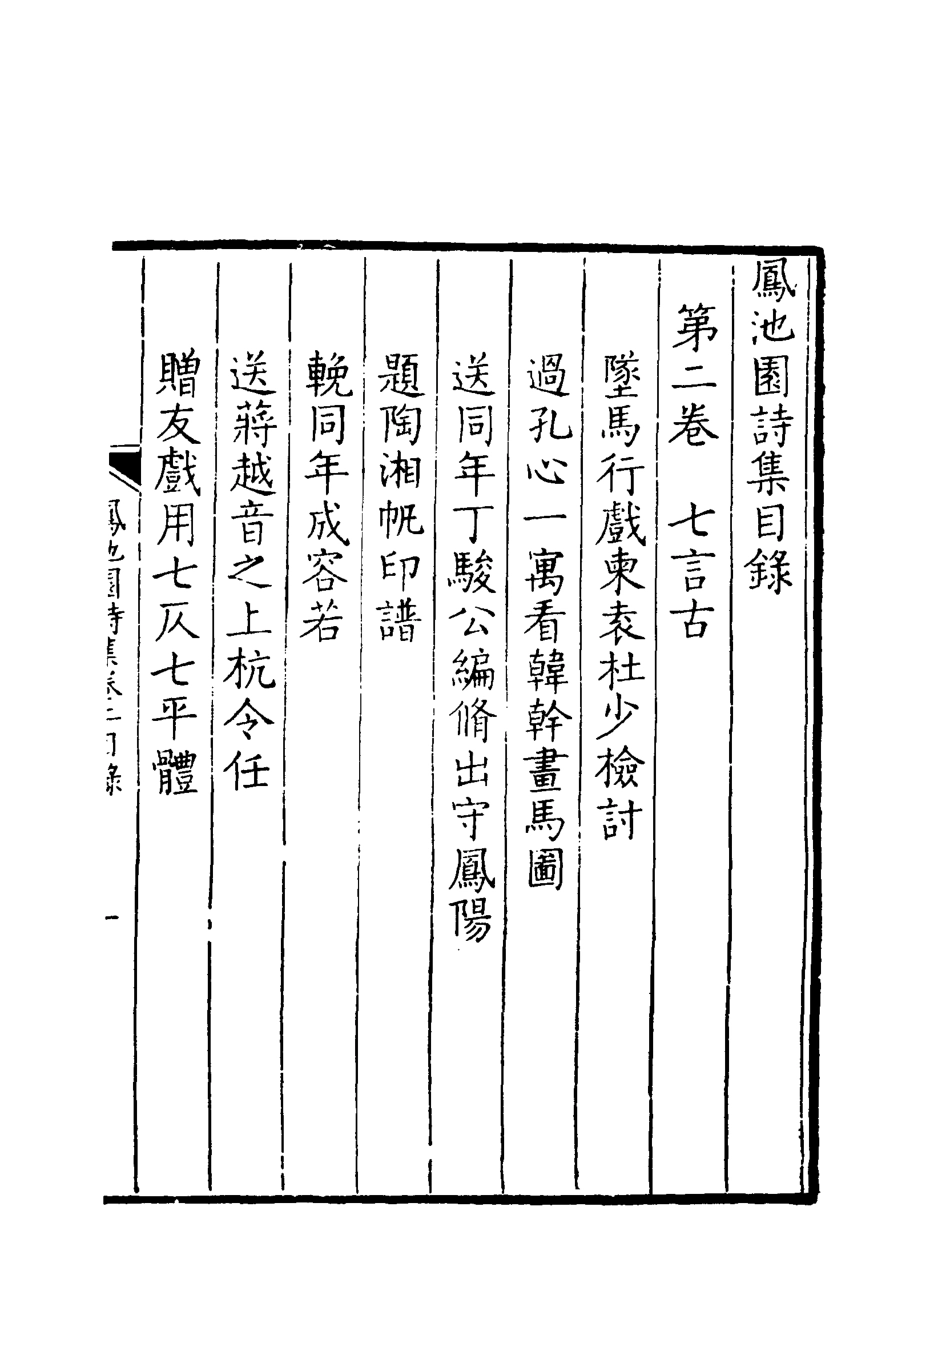 鳳池園詩集目錄
第二卷　七言古
墜馬行戲柬袁杜少檢討
過孔心一寓看韓幹畫馬圖
送同年丁駿公編脩出守鳳陽
題陶湘帆印譜
輓同年成容若
送蔣越音之上杭令任
贈友戲用七仄七平體
鳳池園詩集卷二目錄
一